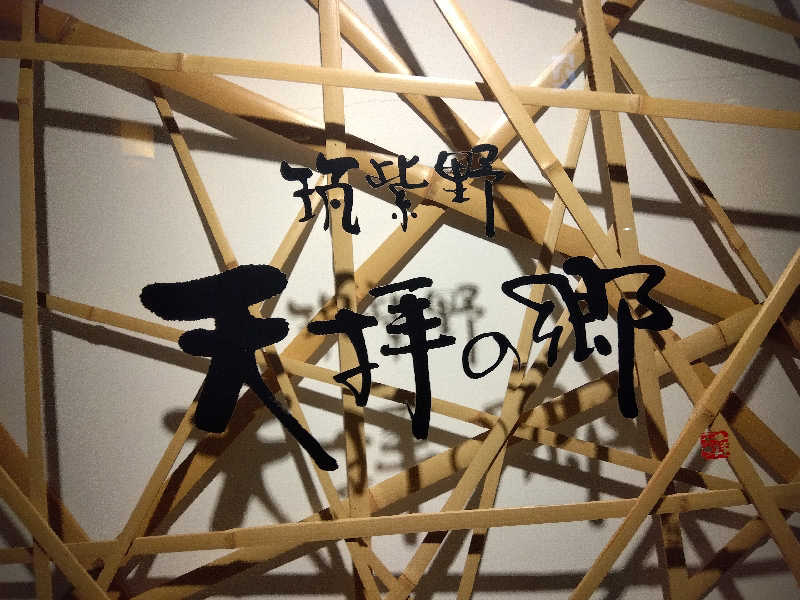 筑紫野
天拝の郷